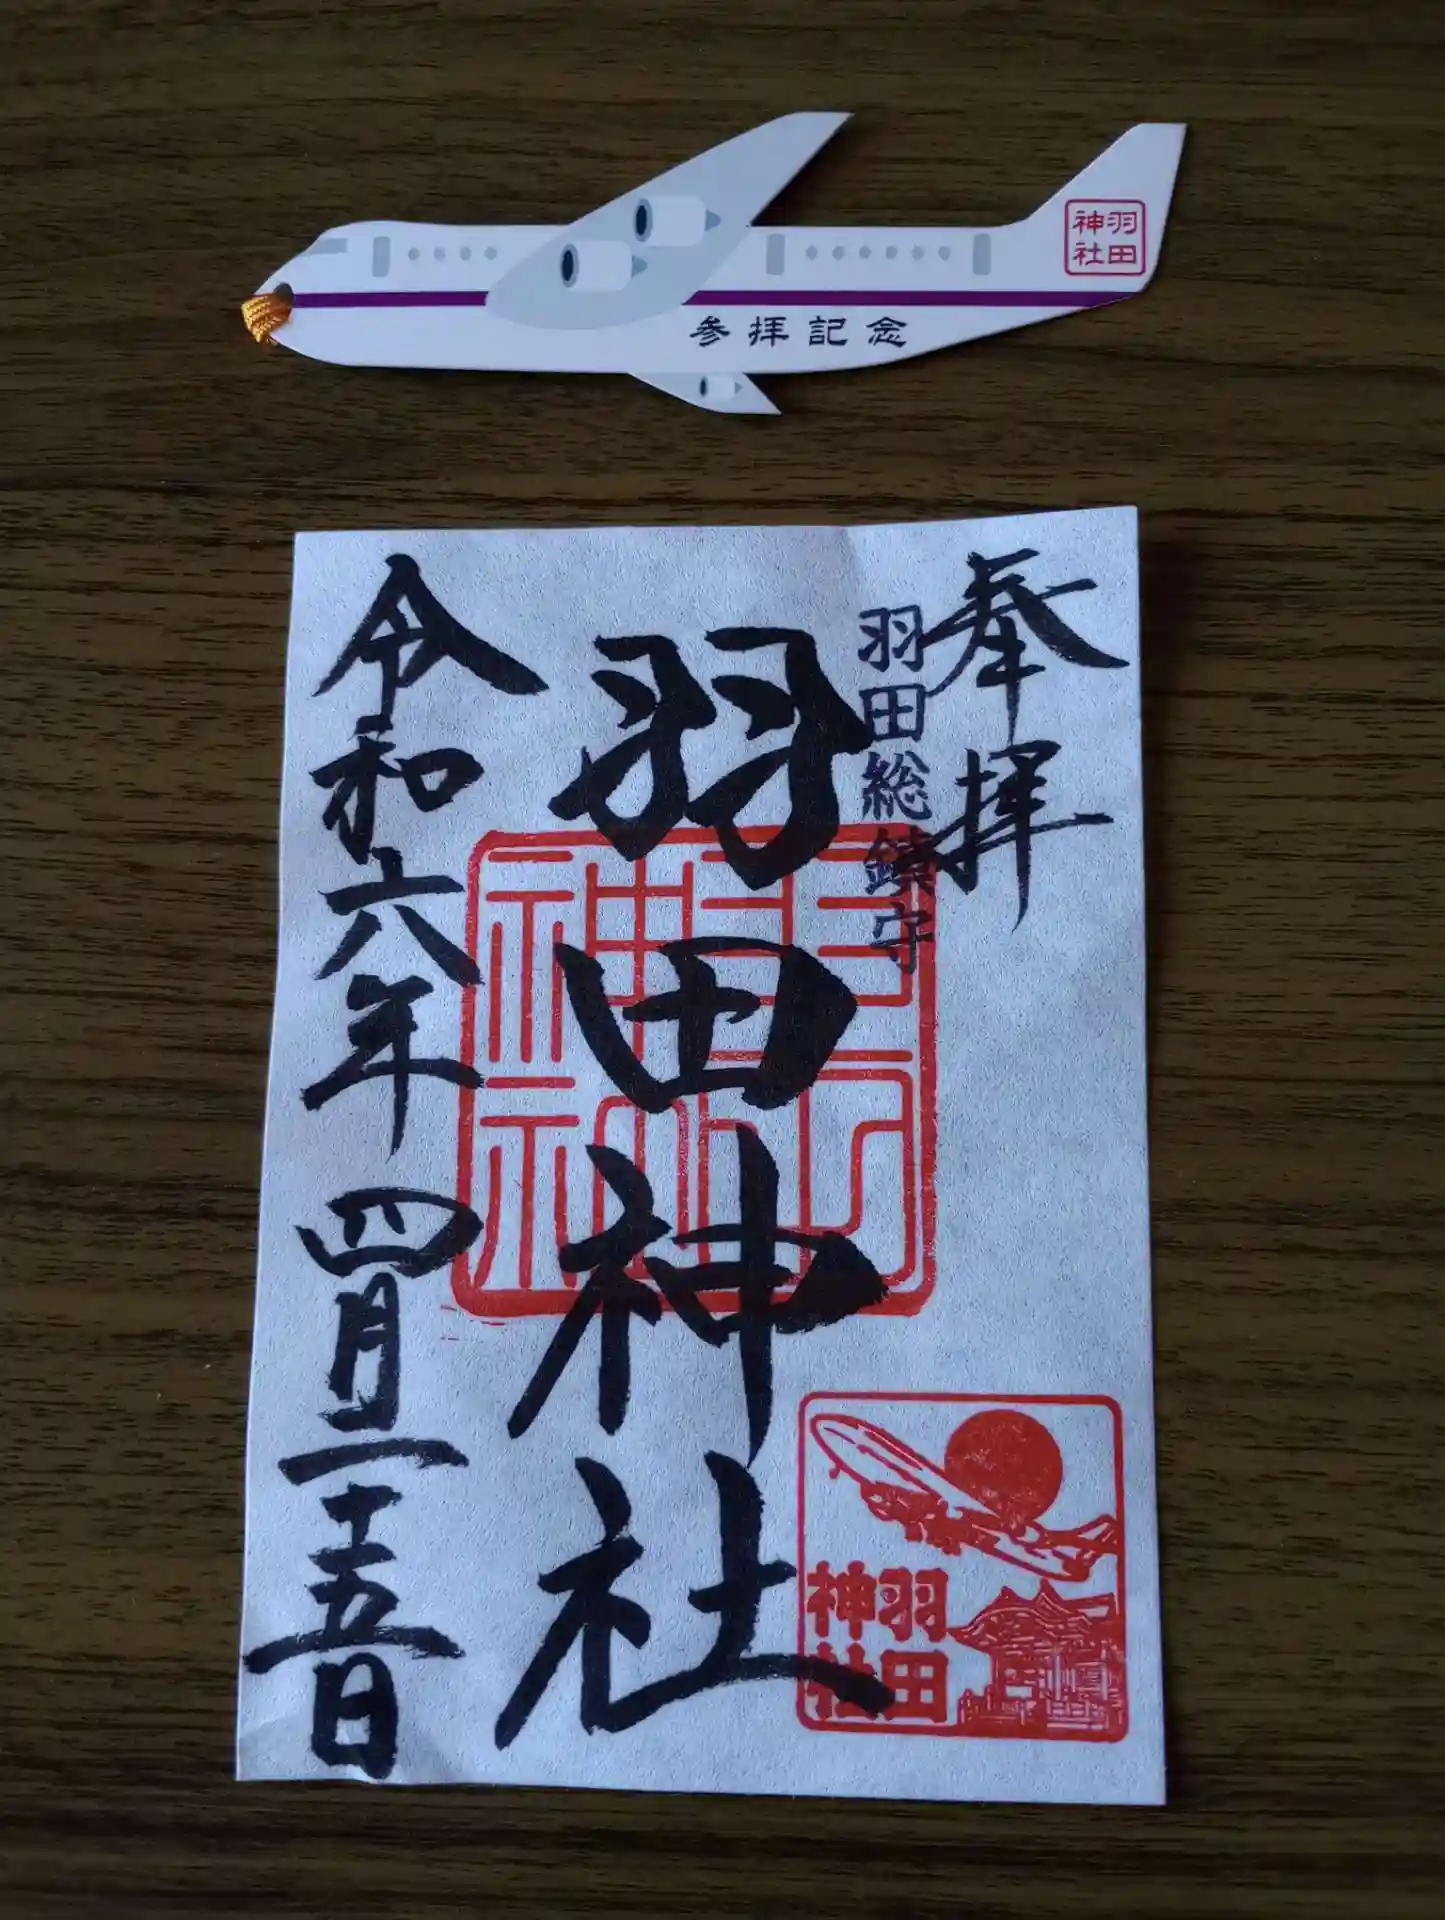 羽田
神社
参拝記念
奉拝
羽田総鎮守
羽田神社
令和六年四月二十五日
羽田
神社